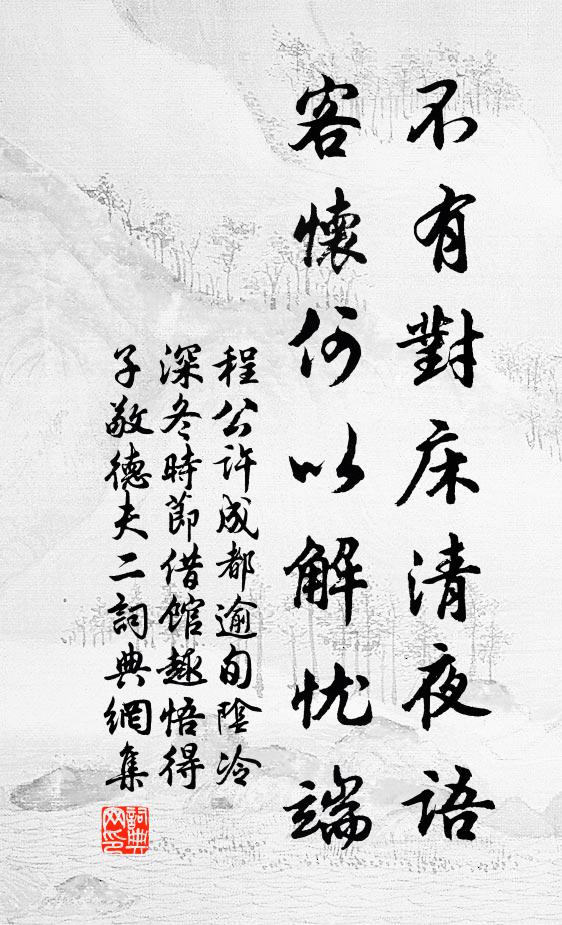 不有對床清夜語
客懷何以解忧端
程公許成都逾旬陰冷
深冬時節借館趣悟得
子敬德夫二詞典網集
詞典网印